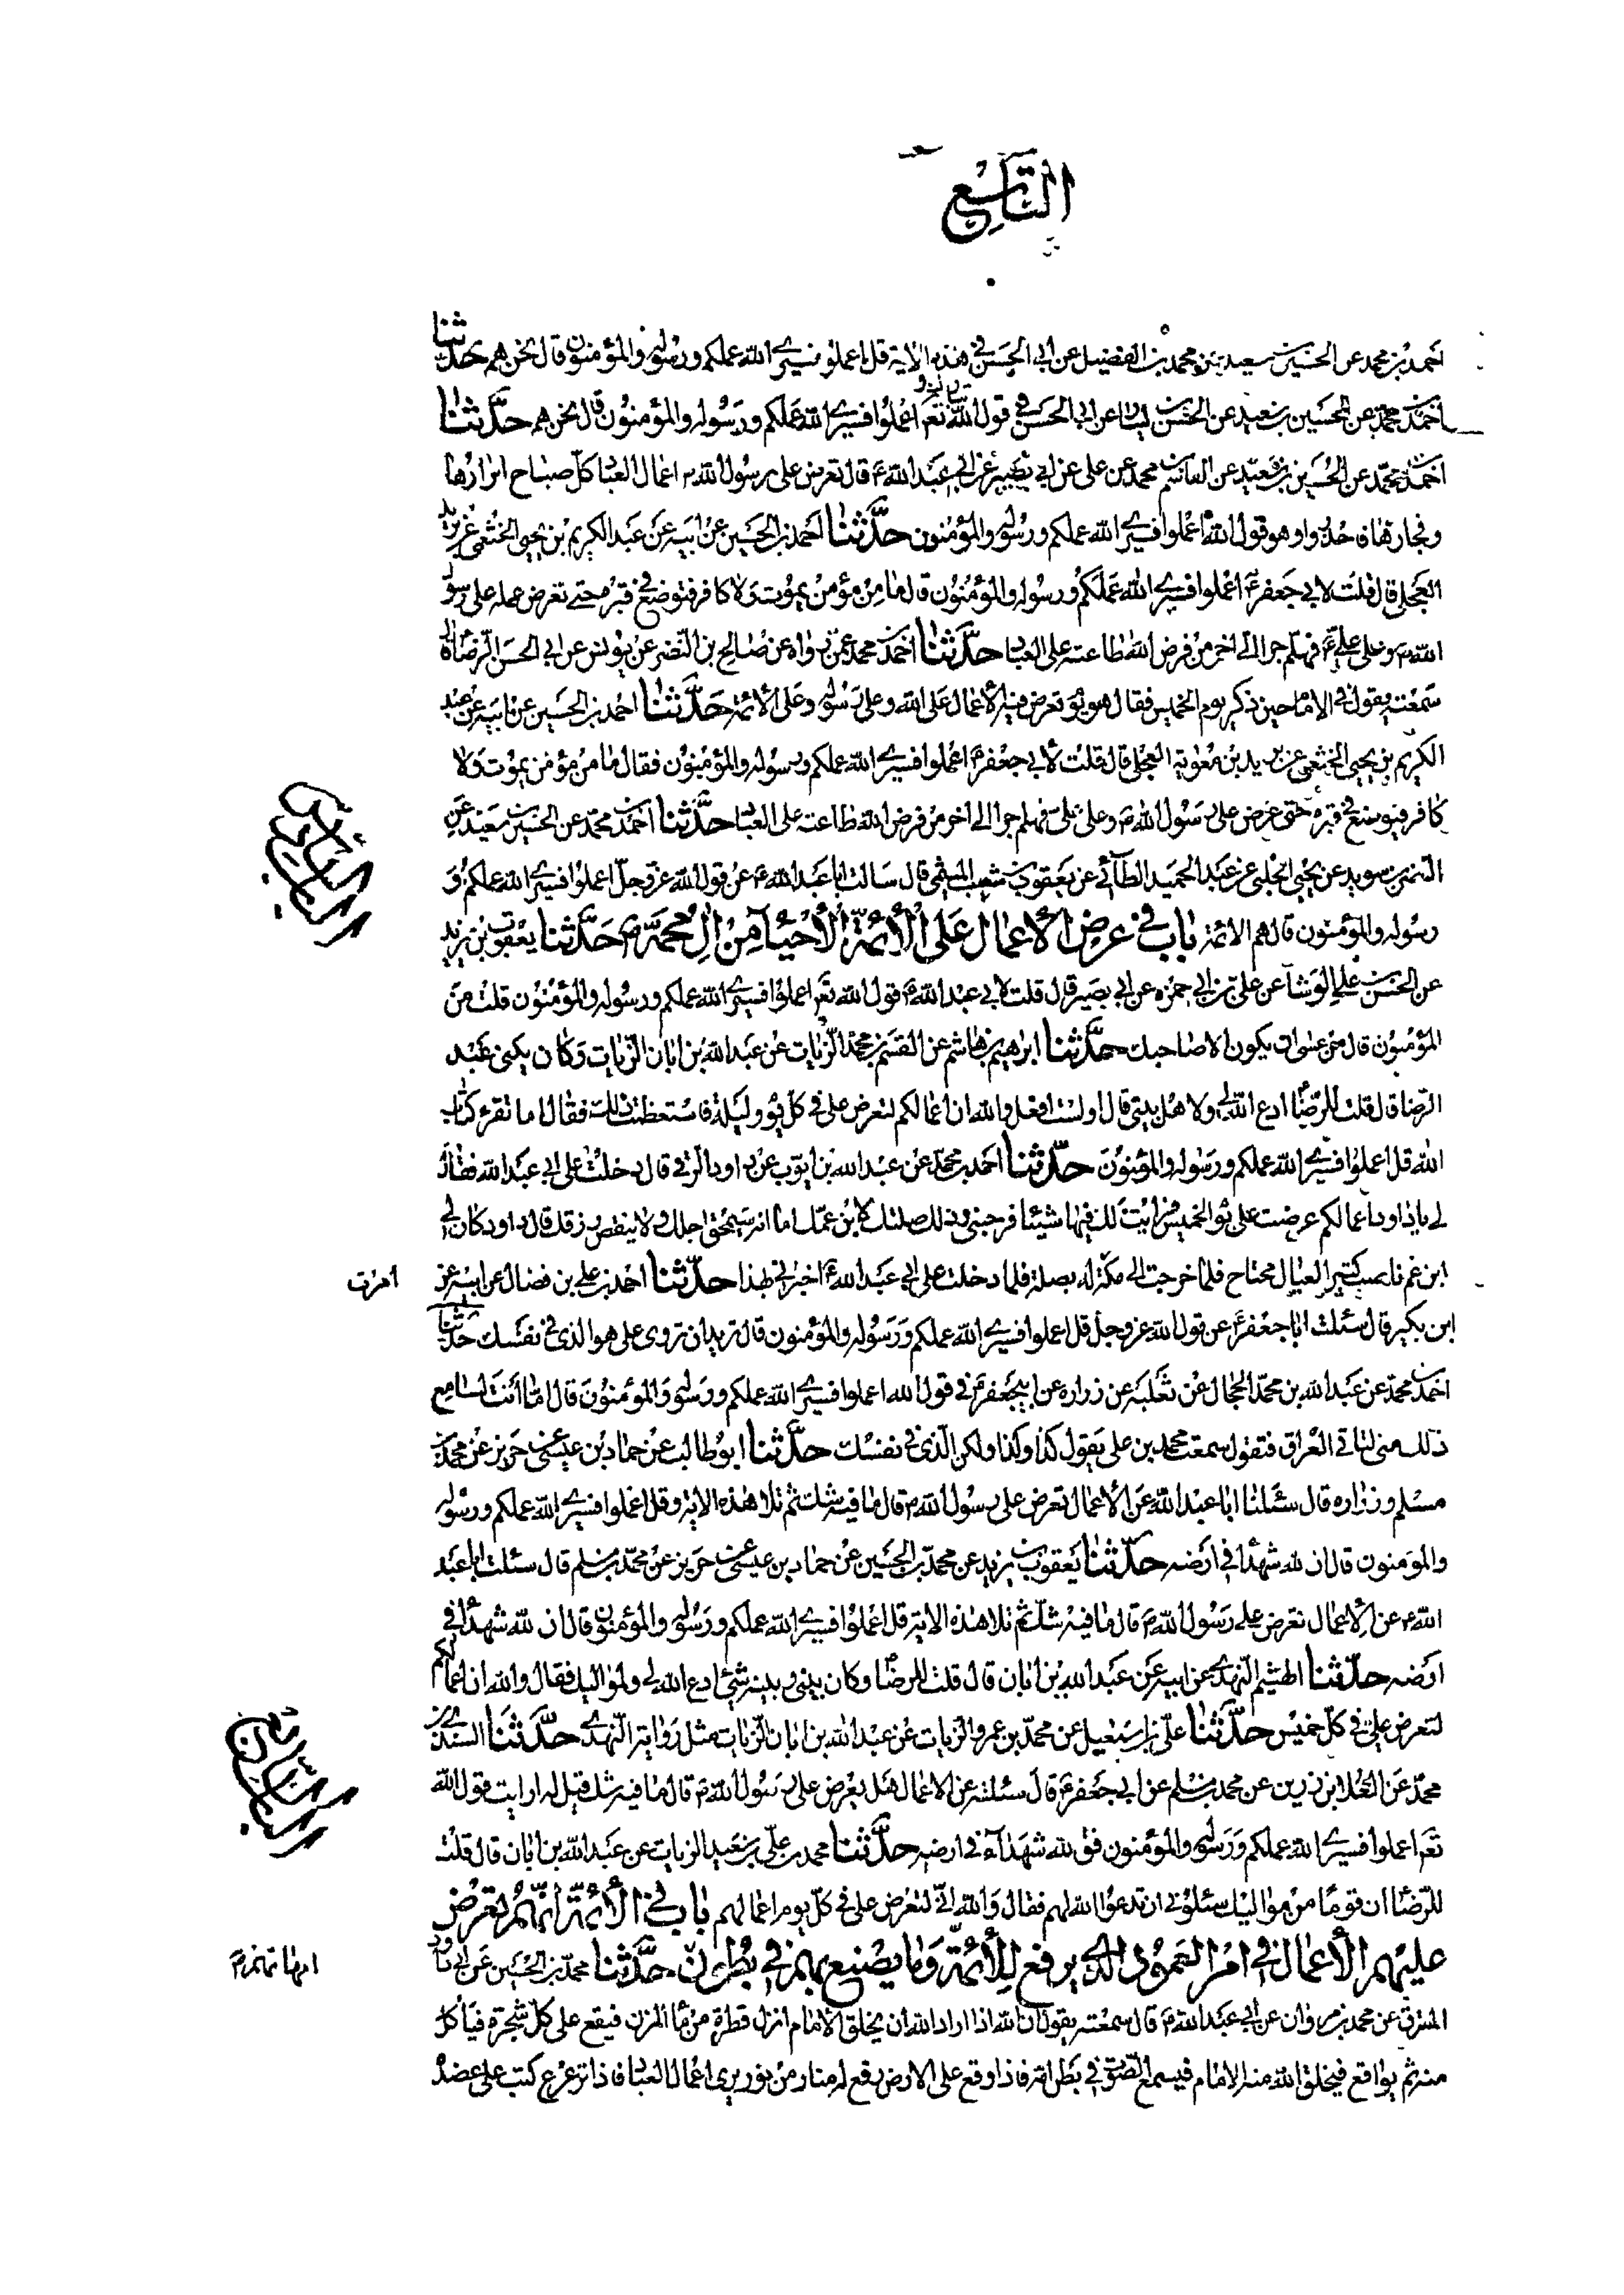 التاسع
احمد بن محمد عن الحسين بن سعيد عن محمد بن الفضيل عن ابي الحسن في هذه الاية قل اعملوا فسيرى الله عملكم ورسوله والمؤمنون قال نحن هم حدثنا
احمد بن محمد عن الحسين بن سعيد عن الحسن بن عن ابي الحسن في قول الله تعم اعملوا فسيرى الله عملكم ورسوله والمؤمنون قال نحن هم حدثنا
احمد بن محمد عن الحسين بن سعيد عن القاسم بن محمد عن علي عن ابي بصير عن ابي عبد الله ع قال تعرض على رسول الله ص اعمال العباد كل صباح ابرارها
وفجارها فاحذروا وهو قول الله اعملوا فسيرى الله عملكم ورسوله والمؤمنون حدثنا احمد بن الحسين عن ابيه عن عبد الكريم بن يحيى الخثعمي عن بريد
العجلي قال قلت لابي جعفر ع اعملوا فسيرى الله عملكم ورسوله والمؤمنون قال ما من مؤمن يموت ولا كافر فتوضع في قبره حتى تعرض عمله على رسول
الله ص وعلى علي ع فهلم جرا الى اخر من فرض الله طاعته على العباد حدثنا احمد بن محمد عمن رواه عن صالح بن النضر عن يونس عن ابي الحسن الرضا ع قال
سمعته يقول في الامام حين ذكر يوم الخميس فقال هو يوم تعرض فيه الاعمال على الله وعلى رسوله وعلى الائمة حدثنا احمد بن الحسين عن ابيه عن عبد
الكريم بن يحيى الخثعمي عن بريد بن معوية العجلي قال قلت لابي جعفر ع اعملوا فسيرى الله عملكم ورسوله والمؤمنون فقال ما من مؤمن يموت ولا
كافر فيوضع في قبره حتى عرض على رسول الله ص وعلى علي فهلم جرا الى اخر من فرض الله طاعته على العباد حدثنا احمد بن محمد عن الحسين بن سعيد عن
النضر بن سويد عن يحيى الحلبي عن عبد الحميد الطائي عن يعقوب بن شعيب الميثمي قال سالت ابا عبد الله ع عن قول الله عز وجل اعملوا فسيرى الله عملكم و
رسوله والمؤمنون قال هم الائمة باب في عرض الاعمال على الأئمة الأحياء من ال محمد ص حدثنا يعقوب بن يزيد
عن الحسن بن علي الوشا عن علي بن ابي حمزه عن ابي بصير قال قلت لابي عبد الله ع قول الله تعم اعملوا فسيرى الله عملكم ورسوله والمؤمنون قلت من
المؤمنون قال من عسى ان يكون الا صاحبك حدثنا ابراهيم بن هاشم عن القسم بن محمد الزيات عن عبد الله بن ابان الزيات وكان يكنى عبد
الرضا قال قلت للرضا ادع الله لي ولاهل بيتي قال اولست افعل والله ان اعمالكم لتعرض علي في كل يوم وليلة فاستعظمت ذلك فقال اما تقرء كتاب
الله قل اعملوا فسيرى الله عملكم ورسوله والمؤمنون حدثنا احمد بن محمد عن عبد الله بن ايوب عن داود الرقي قال دخلت على ابي عبد الله فقال
لي يا داود اعمالكم عرضت علي يوم الخميس فرايت لك فيها شيئا فرحني وذلك صلتك لابن عمك اما انه سيمحق اجله ولا ينقص رزقك قال داود كان لي
ابن عم ناصب كثير العيال محتاج فلما خرجت الى مكة له بصلة فلما دخلت على ابي عبد الله ع اخبرني بهذا حدثنا احمد بن علي بن فضال عن ابيه عن
امرت
ابن بكير قال سئلت ابا جعفر ع عن قول الله عز وجل قل اعملوا فسيرى الله عملكم ورسوله والمؤمنون قال تريد ان تروى علي هو الذي في نفسك حدثنا
احمد بن محمد عن عبد الله بن محمد الحجال عن ثعلبه عن زراره عن ابي جعفر ع في قول الله اعملوا فسيرى الله عملكم ورسوله والمؤمنون قال اما انت لسامع
ذلك مني لتاتي العراق فتقول سمعت محمد بن علي يقول كذا وكذا ولكن الذي في نفسك حدثنا ابو طالب عن حماد بن عيسى عن حريز عن محمد بن
مسلم وزراره قال سئلنا ابا عبد الله عن الاعمال تعرض على رسول الله ص قال ما فيه شك ثم تلا هذه الاية وقل اعملوا فسيرى الله عملكم ورسوله
والمؤمنون قال ان لله شهدا في ارضه حدثنا يعقوب بن يزيد عن محمد بن الحسين عن حماد بن عيسى عن حريز عن محمد بن مسلم قال سئلت ابا عبد
الله ع عن الاعمال تعرض على رسول الله ص قال ما فيه شك ثم تلا هذه الاية قل اعملوا فسيرى الله عملكم ورسوله والمؤمنون قال ان لله شهدا في
ارضه حدثنا الهيثم النهدي عن ابيه عن عبد الله بن ابان قال قلت للرضا وكان بيني وبينه شئ ادع الله لي ولمواليك فقال والله ان اعمالكم
لتعرض علي في كل خميس حدثنا علي بن اسمعيل عن محمد بن عمرو الزيات عن عبد الله بن ابان الزيات مثل رواية النهدي حدثنا السندي بن
محمد عن العلا بن رزين عن محمد بن مسلم عن ابي جعفر ع قال سئلته عن الاعمال هل يعرض على رسول الله ص قال ما فيه شك قيل له ارايت قول الله
تعم اعملوا فسيرى الله عملكم ورسوله والمؤمنون فق لله شهداء في ارضه حدثنا محمد بن علي بن سعيد الزيات عن عبد الله بن ابان قال قلت
للرضا ان قوما من مواليك سئلوني ان تدعوا الله لهم فقال والله اني لتعرض علي في كل يوم اعمالهم باب في الأئمة انهم تعرض
عليهم الأعمال في امر العمود الذي يرفع للأئمة وما يصنع بهم في بطون حدثنا محمد بن الحسين عن ابي داود
امهاتهم ع
المسترق عن محمد بن مروان عن ابي عبد الله ع قال سمعته يقول ان الله اذا اراد الله ان يخلق الامام انزل قطرة من ماء المزن فيقع على كل شجرة فياكل
منه ثم يواقع فيخلق الله منه الامام فيسمع الصوت في بطن امه فاذا وقع على الارض رفع له منار من نور يرى اعمال العباد فاذا ترعرع كتب على عضده